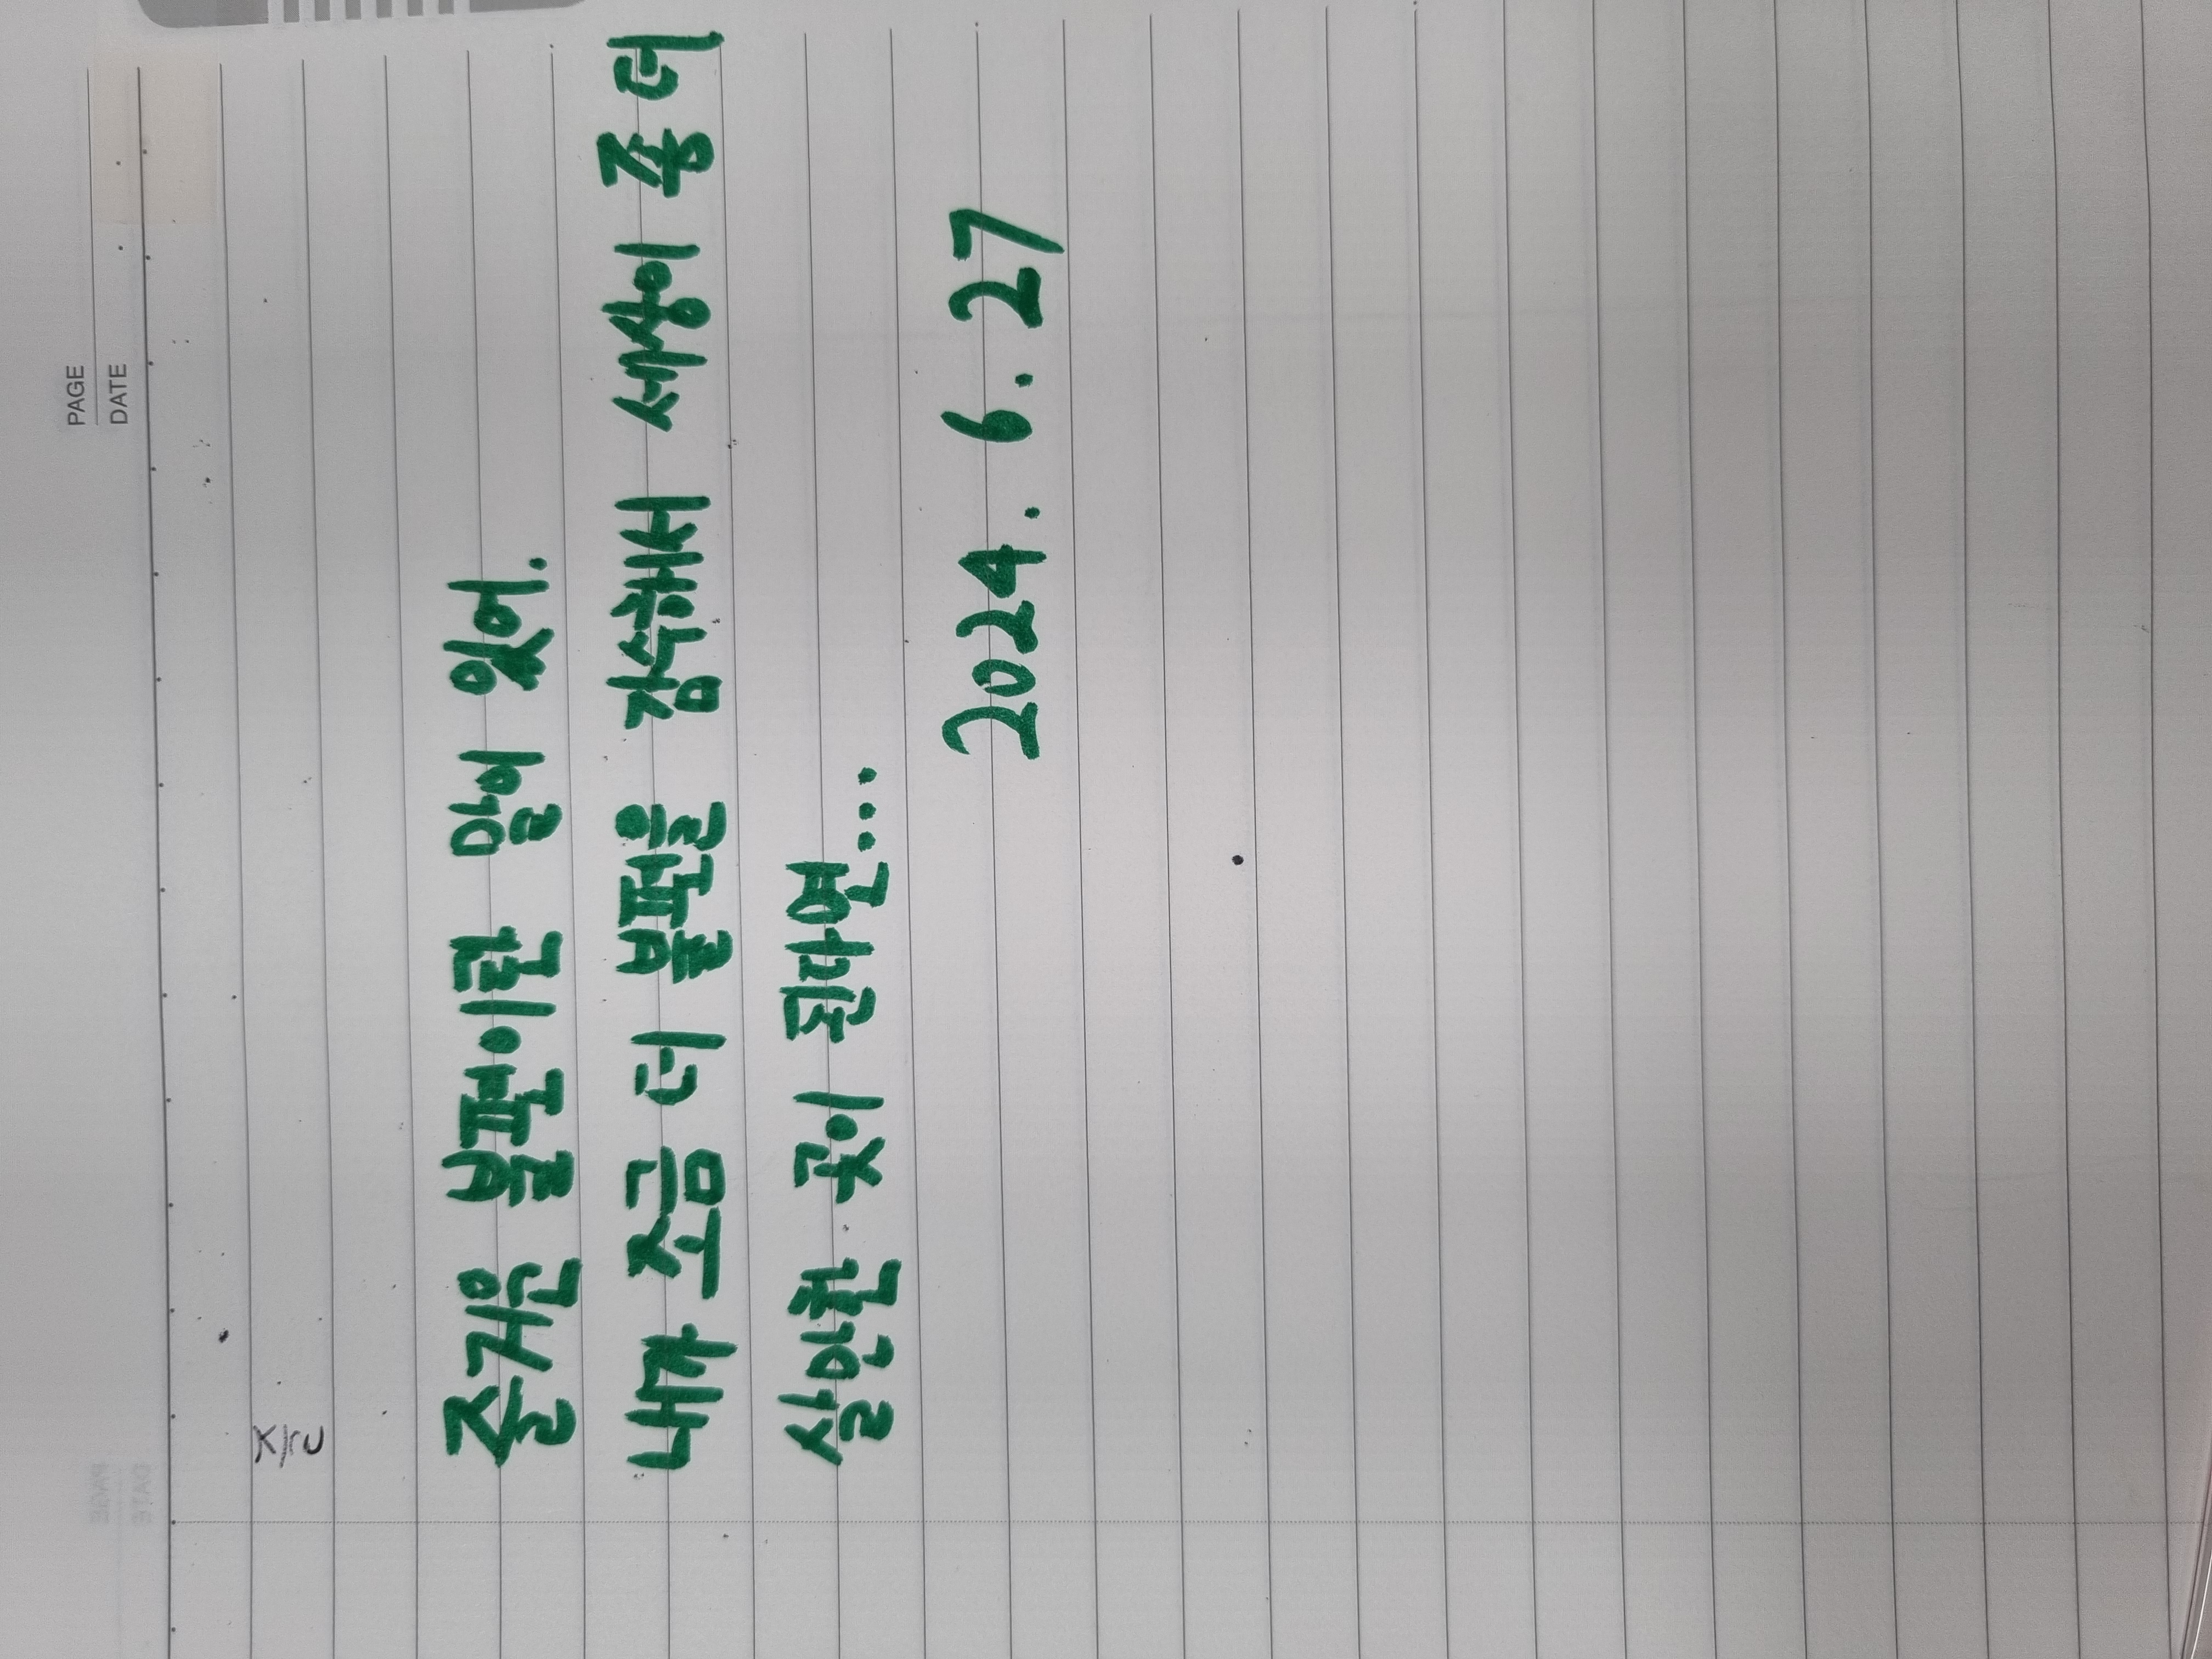 PAGE
DATE
즐거운 불편이란 말이 있어.
내가 조금 더 불편을 감수해서 세상이 좀 더
살만한 곳이 된다면...
2024. 6. 27